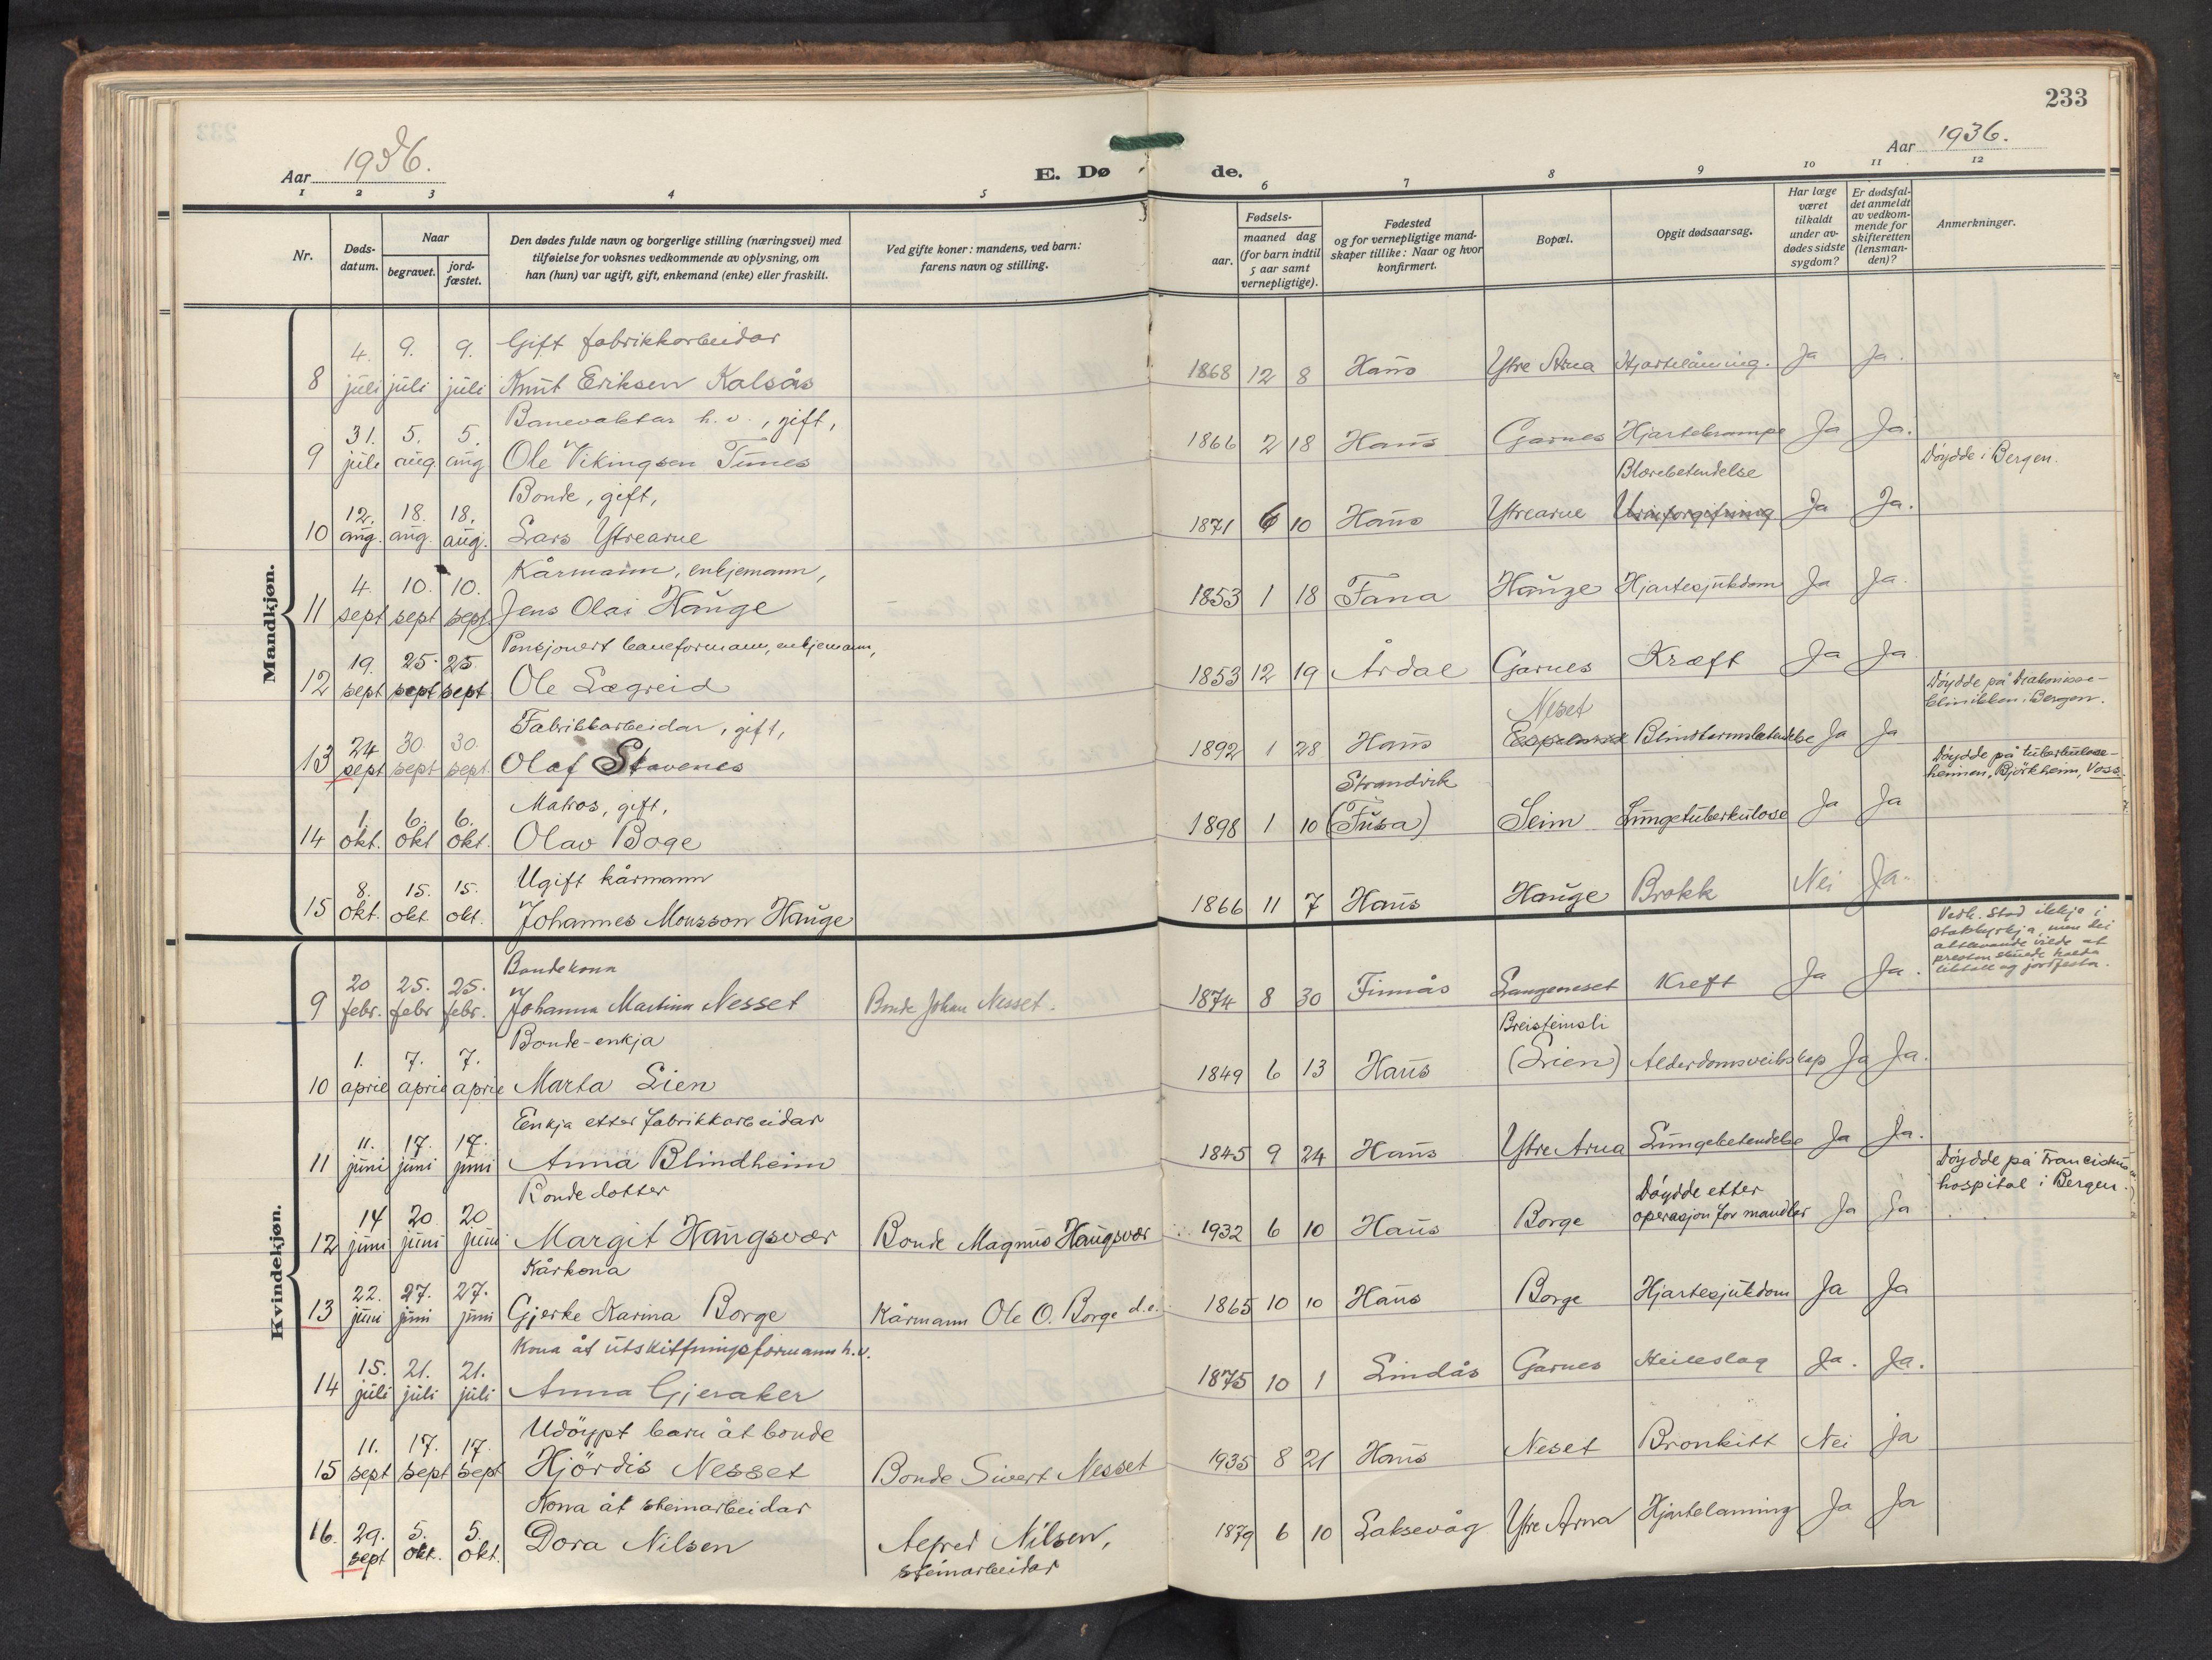 233
Aar 1936.
E. Dø de.
Aar 1936.
1 2 3 4 5 6 7 8 9 10 11 12
Nr.
Døds-
datum.
Naar
begravet.
jord-
fæstet.
Den dødes fulde navn og borgerlige stilling (næringsvei) med
tilføielse for voksnes vedkommende av oplysning, om
han (hun) var ugift, gift, enkemand (enke) eller fraskilt.
Ved gifte koner: mandens, ved barn:
farens navn og stilling.
Fødsels-
aar.
maaned dag
(for barn indtil
5 aar samt
vernepligtige).
Fødested
og for vernepligtige mand-
skaper tillike: Naar og hvor
konfirmert.
Bopæl.
Opgit dødsaarsag.
Har læge
været
tilkaldt
under av-
dødes sidste
sygdom?
Er dødsfal-
det anmeldt
av vedkom-
mende for
skifteretten
(lensman-
den)?
Anmerkninger.
Mandkjøn.
4. 9. 9. Gift fabrikkarbeidar
8 juli juli juli Knut Eriksen Kalsås 1868 12 8 Haus Ytre Arna Hjartelåming. Ja Ja.
31. 5. 5. Banevaktar h.v., gift,
9 juli aug. aug Ole Vikingsen Tunes 1866 2 18 Haus Garnes Hjartekrampe Ja Ja.
Døydde i Bergen.
12. 18. 18. Bonde, gift, Blærebetendelse
10 aug. aug. aug. Lars Ytrearne 1871 6 10 Haus Ytrearne Urinforgiftning Ja Ja.
4. 10. 10. Kårmann, enkjemann,
11 sept sept sept. Jens Olai Hauge 1853 1 18 Fana Hauge Hjartesjukdom Ja Ja.
19. 25. 25 Pensjonert baneformann, enkjemann,
12 sept sept sept Ole Lægreid 1853 12 19 Årdal Garnes Kræft Ja Ja
Døydde på Diakonisse-
klinikken i Bergen.
24 30. 30. Fabrikkarbeidar, gift, Neset
13 sept sept sept. Olaf Stavenes 1892 1 28 Haus Blindtarmsbetendelse Ja Ja
Døydde på tuberkulose-
heimen, Björkheim, Voss.
1. 6. 6. Matros, gift, Strandvik
14 okt. okt okt. Olav Boge 1898 1 10 (Fusa) Seim Lungetuberkulose Ja Ja
8. 15. 15. Ugift kårmann
15 okt. okt okt. Johannes Monsson Hauge 1866 11 7 Haus Hauge Brokk Nei Ja.
Kvindekjøn.
Vedk. stod ikkje i
statskyrkja, men dei
attlevande vilde at
presten skulde halda
likstale og jordfesta.
20 25. 25. Bondekona
9 febr. febr febr. Johanna Martina Nesset Bonde Johan Nesset. 1874 8 30 Finnås Langeneset Kreft Ja Ja.
1. 7. 7. Bonde-enkja Breisteinsli
10 april april april Marta Lien 1849 6 13 Haus (Lien) Alderdomsveikskap Ja Ja.
11. 17. 17. Eenkja etter fabrikkarbeidar
11 juni juni juni Anna Blindheim 1845 9 24 Haus Ytre Arna Lungebetendelse Ja Ja.
Døydde på Franciskus
hospital i Bergen.
14 20 20 Bondedotter Døydde etter
12 juni juni juni Margit Haugsvær Bonde Magnus Haugsvær 1932 6 10 Haus Borge operasjon for mandler Ja Ja
22. 27. 27. Kårkona
13 juni juni juni Gjerke Karina Borge Kårmann Ole O. Borge d.e. 1865 10 10 Haus Borge Hjartesjukdom Ja Ja
15. 21. 21. Kona åt utskiftningsformann h.v.
14 juli juli juli Anna Gjeraker 1875 10 1 Lindås Garnes Heileslag Ja. Ja.
11. 17. 17. Udöypt barn åt bonde
15 sept sept sept Hjördis Nesset Bonde Sivert Nesset 1935 8 21 Haus Neset Bronkitt Nei Ja
Kona åt steinarbeidar
16. 29. 5. 5. Dora Nilsen Alfred Nilsen, 1879 6 10 Laksevåg Ytre Arna Hjartelamming Ja Ja
sept okt. okt. steinarbeidar